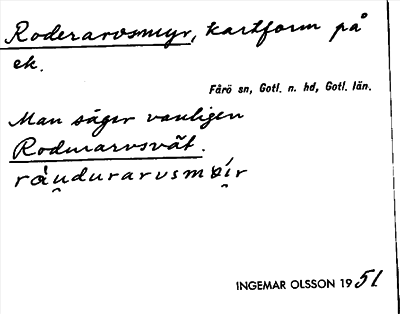 Roderarvsmyr, kartform på
ek.
Fårö sn, Gotl. n. hd, Gotl. län.
Man säger vanligen
Rodurarvsvät.
råu̯durarvsmi̯r
INGEMAR OLSSON 1951